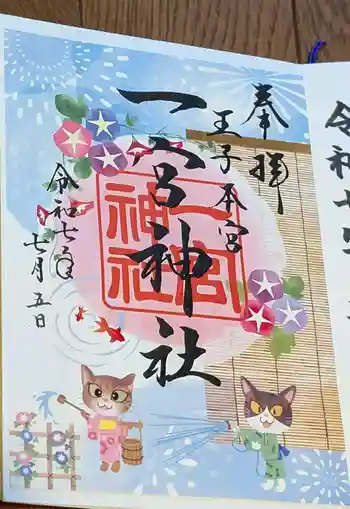 奉拝
王子本宮
一宮神社
一宮神社
令和七年
七月五日
令和七年